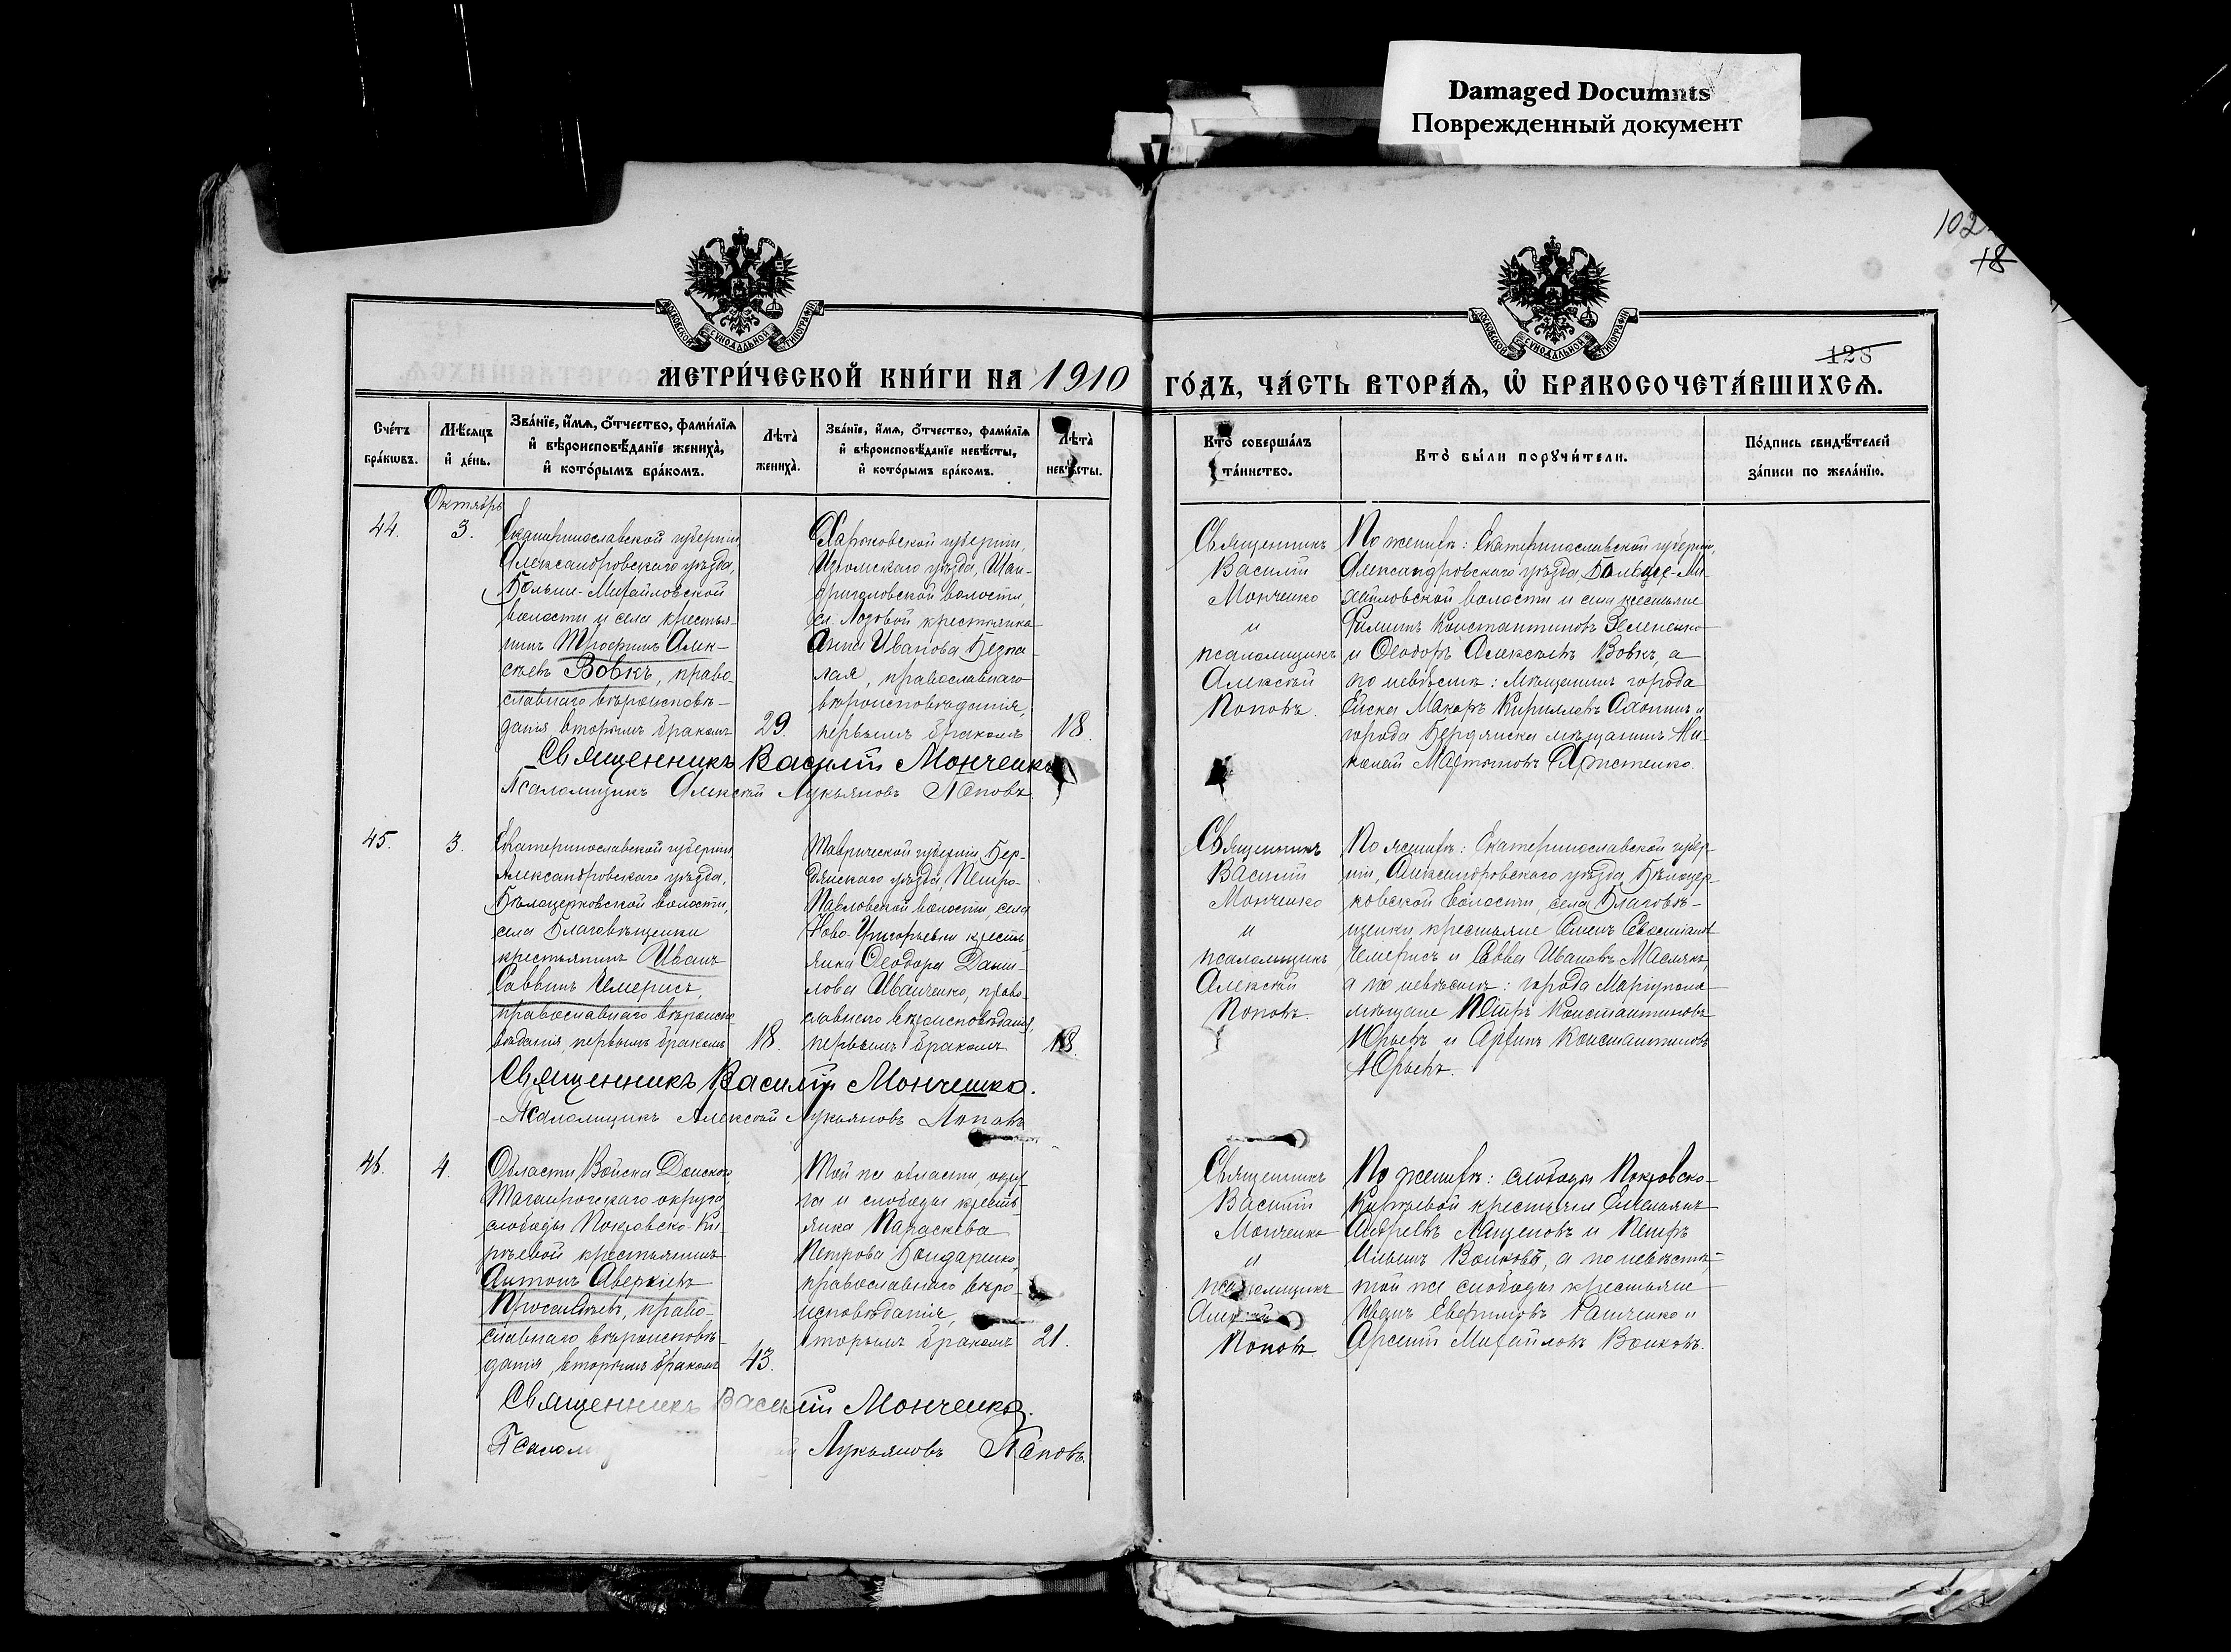 Damaged Documnts
Поврежденный документ
102
18
128
МОСКОВСКОЙ СУНОДАЛЬНОЙ ТИПОГРАФІИ
МОСКОВСКОЙ СУНОДАЛЬНОЙ ТИПОГРАФІИ
МЕТРИ́ЧЕСКОЙ КНИ́ГИ НА 1910
ГО́ДЪ, ЧА́СТЬ ВТОРА́Ѧ, Ѽ БРАКОСОЧЕТА́ВШИХСѦ.
Сче́тъ бра́кѡвъ.
Мѣ́сѧцъ и҆ де́нь.
Зва́нїе, и҆́мѧ, ѻ҆́тчество, фами́лїѧ и҆ вѣроисповѣ́данїе жениха̀, и҆ кото́рымъ бра́комъ.
Лѣ́та̀ жениха̀.
Зва́нїе, и҆́мѧ, ѻ҆́тчество, фами́лїѧ и҆ вѣроисповѣ́данїе невѣ́сты, и҆ кото́рымъ бра́комъ.
Лѣ́та̀ невѣ́сты.
Кто̀ соверша́лъ та́инство.
Кто̀ бы́ли порꙋчи́тели.
По́дпись свидѣ́телей за́писи по жела́нїю.
Октябрь
44.
3.
Екатеринославской губерніи
Александровскаго уѣзда,
Больше-Михайловской
волости и села крестья-
нинъ Трофимъ Алек-
сѣевъ Вовкъ, право-
славнаго вѣроисповѣ-
данія вторымъ бракомъ
29.
Харьковской губерніи,
Изюмскаго уѣзда,
волости,
сл. Лозовой крестьянка
Анна Иванова
православнаго
вѣроисповѣданія,
первымъ бракомъ
18.
Священникъ
Василій
Монченко
и
псаломщикъ
Алексѣй
Поповъ.
По женихѣ: Екатеринославской губерніи,
Александровскаго уѣзда, Больше-Ми-
хайловской волости и села крестьяне
Филиппъ Константиновъ Зелененко
и Ѳеодоръ Алексѣевъ Вовкъ, а
по невѣстѣ: мѣщанинъ города
Ейска Макаръ Кирилловъ и
города Бердянска мѣщанинъ Ни-
колай
Священникъ Василій Монченко
Псаломщикъ Алексѣй Лукьяновъ Поповъ.
45.
3.
Екатеринославской губерніи
Александровскаго уѣзда,
Бѣлоцерковской волости,
села Благовѣщенки
крестьянинъ Иванъ
Саввинъ Чемерисъ,
православнаго вѣроиспо-
вѣданія, первымъ бракомъ
18.
Таврической губерніи, Бер-
дянскаго уѣзда, Петро-
Павловской волости, села
Ново-Григорьевки кресть-
янка Ѳеодора Дани-
лова Иванченко, право-
славнаго вѣроисповѣданія,
первымъ бракомъ
18.
Священникъ
Василій
Монченко
и
псаломщикъ
Алексѣй
Поповъ.
По женихѣ: Екатеринославской губер-
ніи, Александровскаго уѣзда, Бѣлоцер-
ковской волости, села Благовѣ-
щенки крестьяне
Чемерисъ и Савва Ивановъ
а по невѣстѣ: города Маріуполя
мѣщане Петръ Константиновъ
Юрьевъ и Константиновъ
Юрьевъ.
Священникъ Василій Монченко.
Псаломщикъ Алексѣй Лукьяновъ Поповъ
46.
4.
Области Войска Донскаго,
Таганрогскаго округа
слободы Покровско-Ки-
рѣевой крестьянинъ
Антонъ Аверкіевъ
право-
славнаго вѣроисповѣ-
данія, вторымъ бракомъ
43.
Той же области, окру-
га и слободы кресть-
янка Параскева
Петрова Бондаренко,
православнаго вѣро-
исповѣданія,
вторымъ бракомъ
21.
Священникъ
Василій
Монченко
и
псаломщикъ
Алексѣй
Поповъ
По женихѣ: слободы Покровско-
Кирѣевой крестьяне Емельянъ
Андреевъ и Петръ
Ильинъ Волковъ, а по невѣстѣ:
той же слободы крестьяне
Иванъ Евфимовъ и
Арсеній Михайловъ Волковъ.
Священникъ Василій Монченко.
Псалом Лукьяновъ Поповъ.